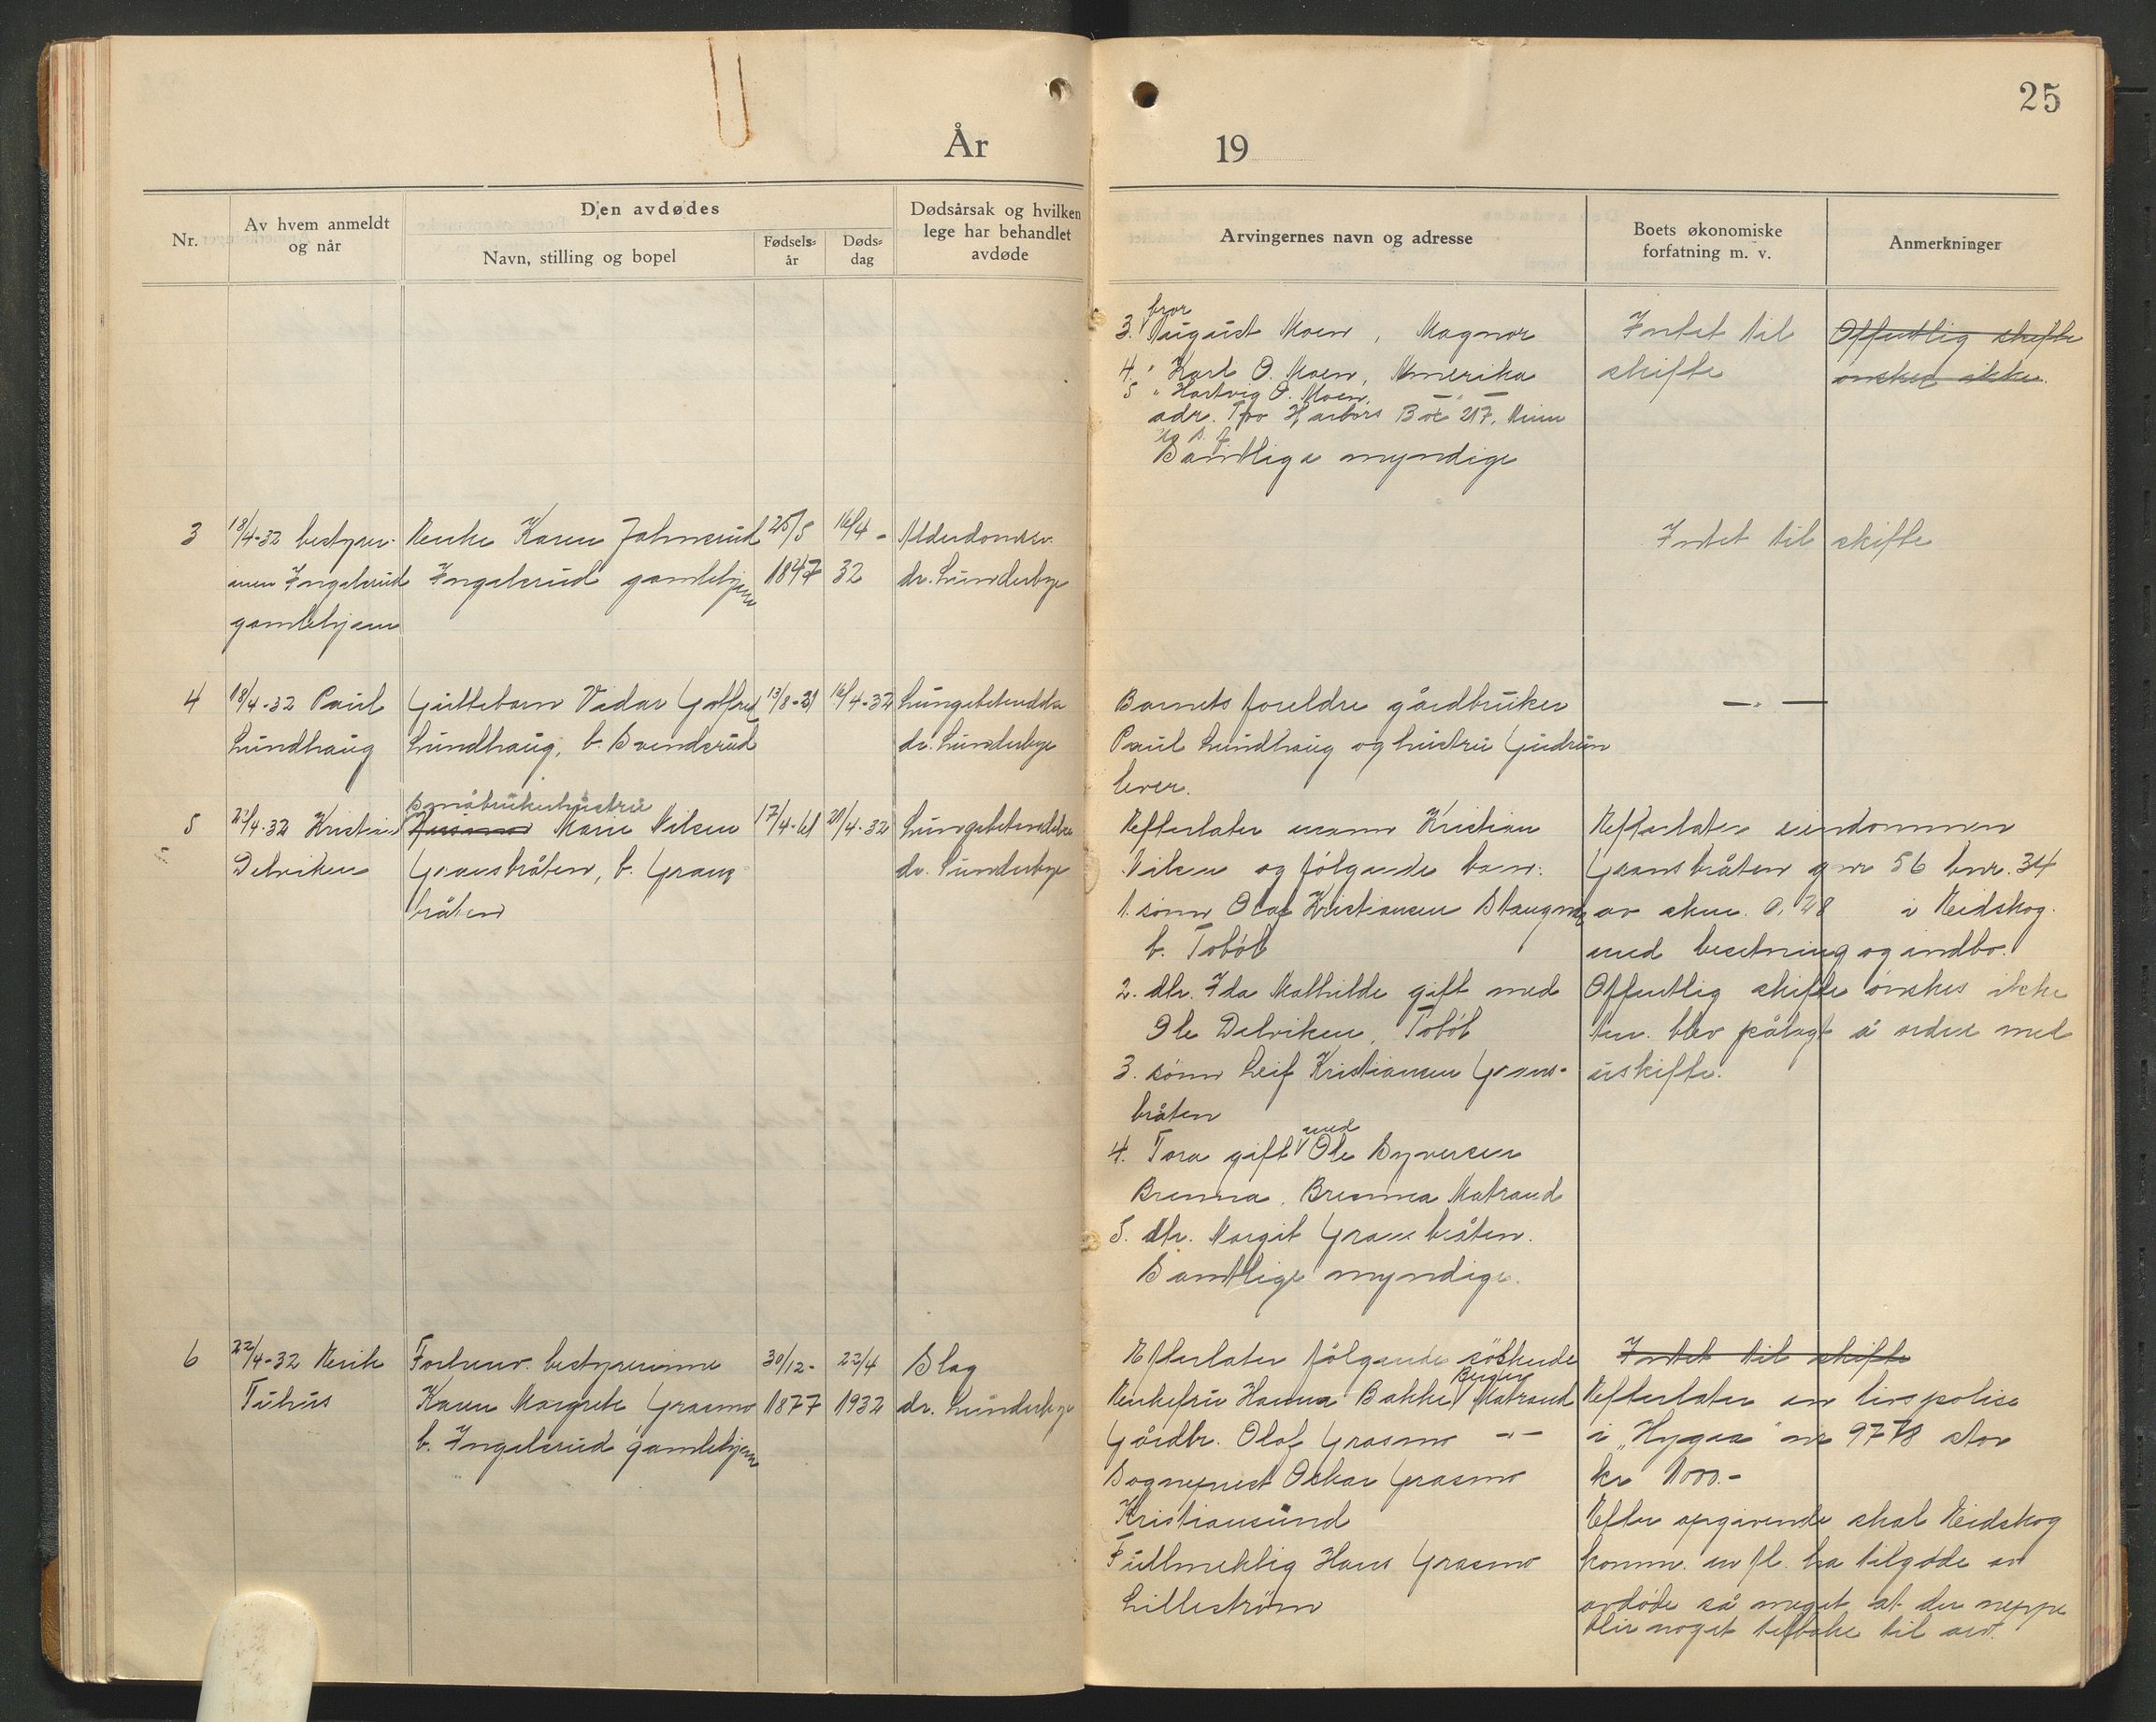 25
År 19
Nr.
Av hvem anmeldt
og når
Den avdødes
Navn, stilling og bopel
Fødsels-
år
Døds-
dag
Dødsårsak og hvilken
lege har behandlet
avdøde
Arvingernes navn og adresse
Boets økonomiske
forfatning m. v.
Anmerkninger
bror
3. August Moen, Magnor
4. " Karl O. Moen, Amerika
5 " Hartvig O. Moen, — " —
adr. Two Harbors Box 217, Minn
U. S. A.
Samtlige myndige
Intet til
skifte
Offentlig skifte
ønskes ikke.
3
18/4-32 bestyrer-
inen Ingelsrud
gamlehjem
Enke Karen Johnsrud
Ingelsrud gamlehjem
25/5
1847
16/4 -
32
Alderdomssv.
dr. Lunderbye
Intet til skifte
4
18/4-32 Paul
Lundhaug
Guttebarn Vidar Gotfred
Lundhaug, b. Svenderud
13/8-31
16/4-32
Lungebetendelse
dr. Lunderbye
Barnets foreldre gårdbruker
Paul Lundhaug og hustru Gudrun
lever.
— " —
5
23/4-32 Kristian
Delviken
Småbrukerhustru
Marie Nilsen
Gransbråten, b. Grans
bråten
17/4-61
20/4-32
Lungebetendelse
dr. Lunderbye
Efterlater mann Kristian
Nilsen og følgende barn:
1. sønn Olaf Kristiansen Skaugmo
b. Tobøl
2. dtr. Ida Mathilde gift med
Ole Delviken, Tobøl
3. sønn Leif Kristiansen Grans-
bråten
4. Tora gift med Ole Syversen
Brenna, Brenna Matrand
5. dtr. Margit Gransbråten.
Samtlige myndige.
Efterlater eiendommen
Gransbråten gnr 56 bnr. 34
av skm. 0,48 i Eidskog.
med besetning og indbo.
Offentlig skifte ønskes ikke
blev pålagt å sidde med
uskifte.
6
22/4-32 Erik
Tuhus
Forhenv. bestyrerinne
Karen Margrete Grasmo
b. Ingelsrud gamlehjem
30/12-
1877
22/4
1932
Slag
dr. Lunderbye
Efterlater følgende søskende
Enkefru Hanna Bakke, Matrand
Gårdbr. Olaf Grasmo — " —
Sogneprest Oskar Grasmo
Kristiansund
Fullmektig Hans Grasmo
Lillestrøm
Intet til skifte
Efterlater en livspolise
i "Hygea" nr 9778 stor
kr 1000.-
Efter opgivende skal Eidskog
komm. m fl. ha tilgode av
avdøde så meget at der neppe
blir noget tilbake til arv.